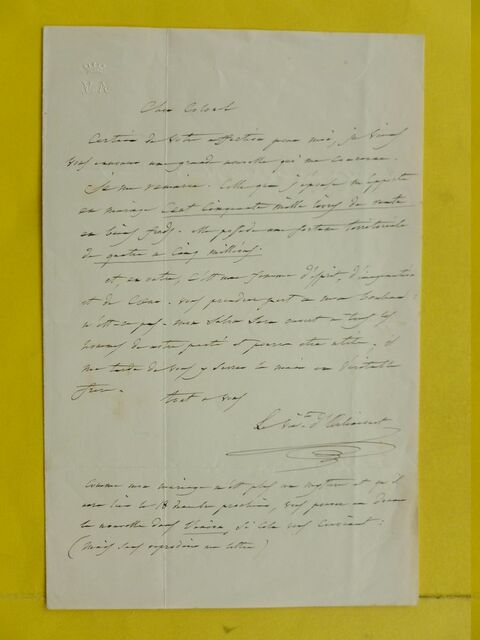 V. A.
Cher Colonel
Certain de votre affection pour moi, je viens
vous annoncer une grande nouvelle qui me concerne.
Je me remarie. Celle que j'épouse m'apporte
en mariage Cent Cinquante mille livres de rente
en biens fonds. Elle possède une fortune territoriale
de quatre à Cinq millions.
et, en outre, c'est une femme d'esprit, d'imagination
et de Cœur. vous prendrez part à mon bonheur :
n'est-ce pas. mon Salon Sera ouvert à tous les
hommes de notre parti et pourra être utile. il
me tarde de vous y serrer la main en Véritable
frère.
tout à vous
Le Vte d'Arlincourt
Comme mon mariage n'est plus un mystère et qu'il
aura lieu le 18 prochain, vous pouvez en donner
la nouvelle dans, Si cela vous Convient :
(Mais sans reproduire ma lettre)